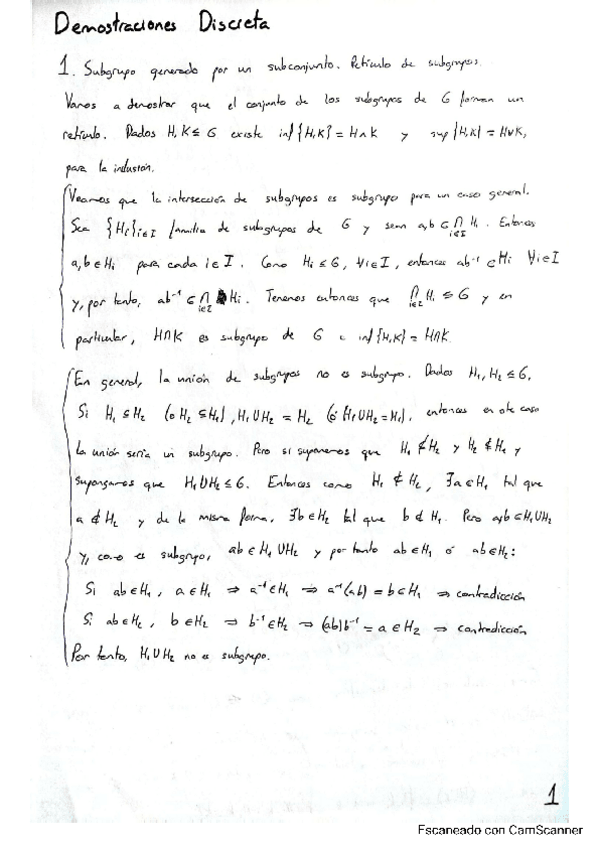 Demostraciones Discreta
1. Subgrupo generado por un subconjunto. Retículo de subgrupos.
Vamos a demostrar que el conjunto de los subgrupos de G forman un
retículo. Dados H, K ≤ G existe inf{H,K} = H∧K y sup{H,K} = H∨K,
para la inclusión.
Veamos que la intersección de subgrupos es subgrupo para un caso general.
Sea {Hi}i∈I familia de subgrupos de G y sean a,b ∈ ⋂i∈I Hi. Entonces
a,b ∈ Hi para cada i∈I. Como Hi ≤ G, ∀i∈I, entonces ab⁻¹ ∈ Hi ∀i∈I
y, por tanto, ab⁻¹ ∈ ⋂i∈I Hi. Tenemos entonces que ⋂i∈I Hi ≤ G y en
particular, H∩K es subgrupo de G e inf{H,K} = H∩K
En general, la unión de subgrupos no es subgrupo. Dados H₁, H₂ ≤ G,
Si H₁ ⊆ H₂ (o H₂ ⊆ H₁), H₁∪H₂ = H₂ (ó H₁∪H₂ = H₁), entonces en este caso
la unión sería un subgrupo. Pero si suponemos que H₁ ⊈ H₂ y H₂ ⊈ H₁ y
supongamos que H₁∪H₂ ≤ G. Entonces como H₁ ⊈ H₂, ∃a∈H₁ tal que
a ∉ H₂ y de la misma forma, ∃b∈H₂ tal que b ∉ H₁. Pero a,b ∈ H₁∪H₂
y, como es subgrupo, ab ∈ H₁∪H₂ y por tanto ab∈H₁ ó ab∈H₂:
Si ab∈H₁, a∈H₁ ⇒ a⁻¹∈H₁ ⇒ a⁻¹(ab) = b∈H₁ ⇒ contradicción
Si ab∈H₂, b∈H₂ ⇒ b⁻¹∈H₂ ⇒ (ab)b⁻¹ = a∈H₂ ⇒ contradicción
Por tanto, H₁∪H₂ no es subgrupo.
1
Escaneado con CamScanner